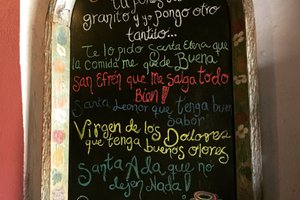 Tú pones un
granito y yo pongo otro
tantito...
Te lo pido Santa Elena que
la Comida me quede Buena
SAN Efrén que me salga todo
Bien!
Santa Leonor que tenga buen
sabor
Virgen de los Dolores
que tenga buenos olores
Santa Ada que no
dejen Nada!